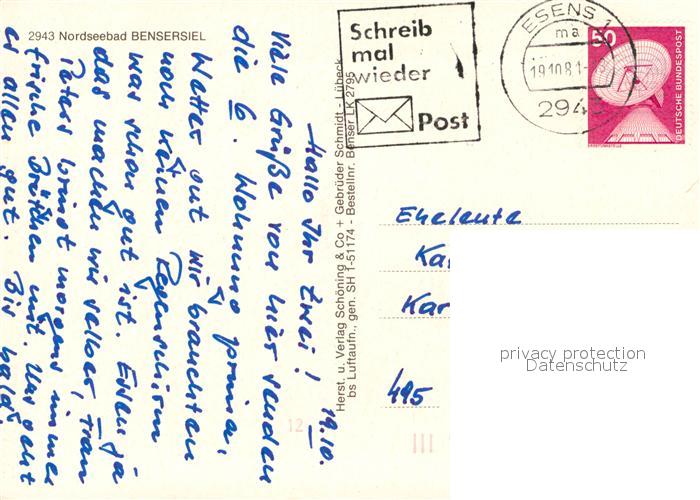 2943 Nordseebad BENSERSIEL
Schreib
mal
wieder
Post
ESENS 1
ma
19.10.81-
2943
50
DEUTSCHE BUNDESPOST
19.10.
Hallo Ihr zwei!
Viele Grüße von hier senden
die 6. Wohnung prima,
Wetter gut wir brauchten
noch keinen Regenschirm
was schon gut ist. Essen ja
das machen wir selber, Frau
Peters bringt morgens immer
frische Brötchen mit. Uns geht
es allen gut. Bis bald.
Herst. u. Verlag Schöning & Co + Gebrüder Schmidt - Lübeck
bs Luftaufn., gen. SH 1-51174 - Bestellnr. Benser LK 2795
Eheleute
Ka
Kar
495
12
III
privacy protection
Datenschutz